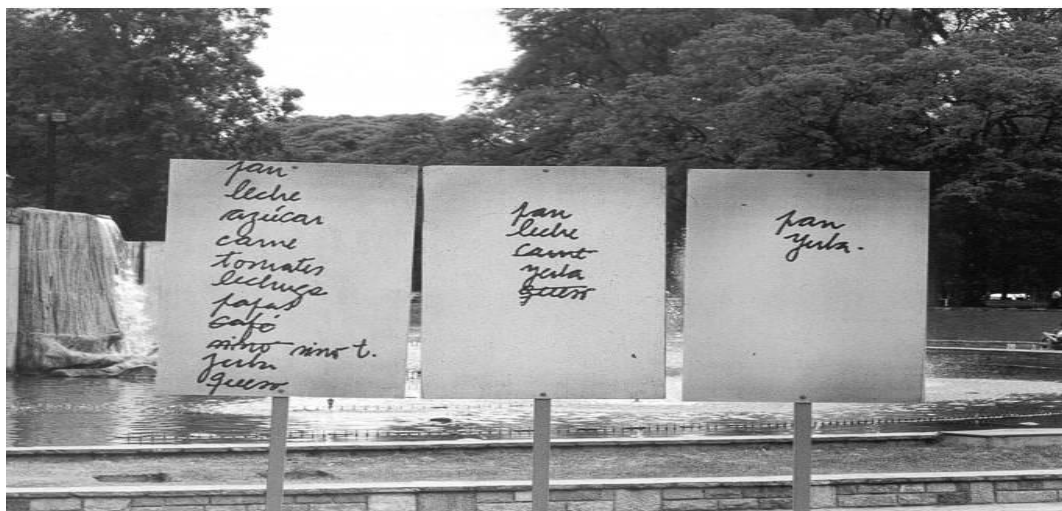 pan
leche
azúcar
carne
tomates
lechuga
papas
café
vino t.
yerba
queso
pan
leche
carne
yerba
queso
pan
yerba.